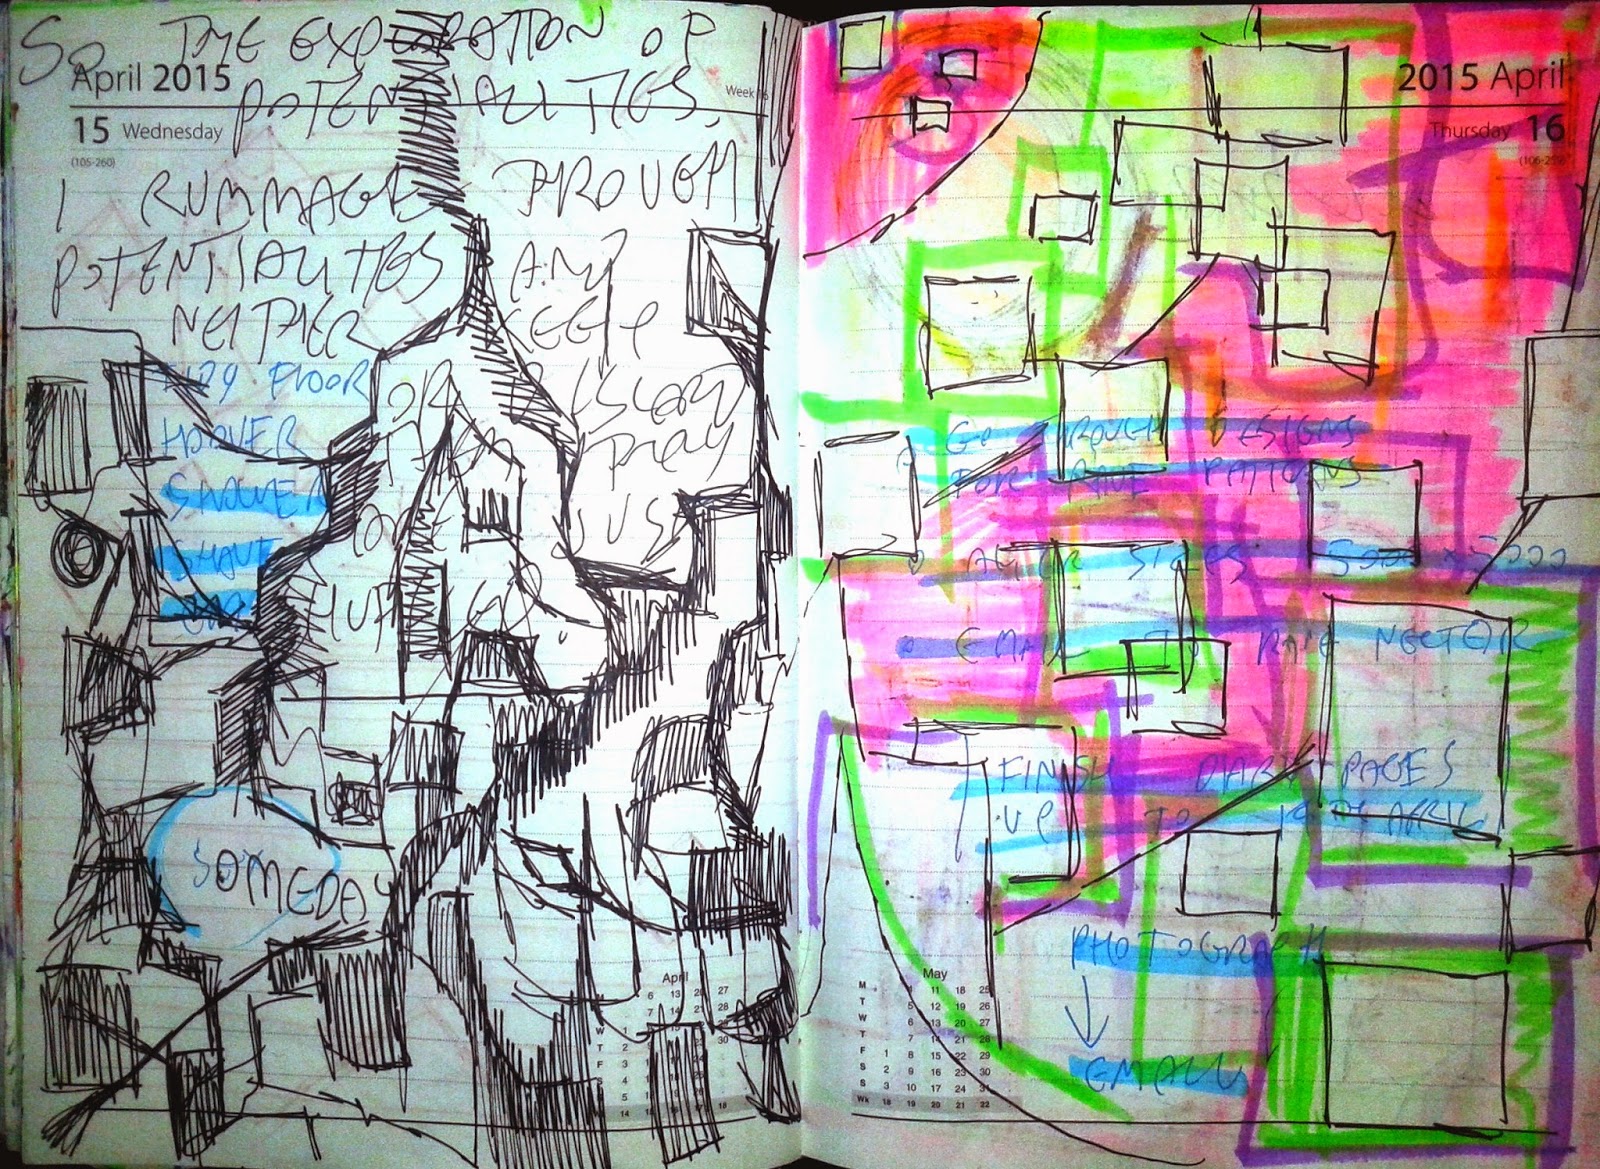 So THE EXPLORATION OF
April 2015
POTENTIALITIES,
Week 16
15 Wednesday
(105-260)
I RUMMAGE THROUGH
POTENTIALITIES AND
NEITHER KEEP
TIDY FLOOR OR DISCARD
HOOVER THEY
SHOWER JUST
SHOUT
SOMEDAY
April
6 13 20 27
7 14 21 28
W 1
T 2
F 3
S 4
S 5
W 14 15 16 17 18
2015 April
Thursday 16
GO THROUGH DESIGNS
FOR RAVE PATTERNS
ALTER SIZES 5000 x 5000
EMAIL TO RAVE NECTOR
FINISH DIARY PAGES
UP TO 19th APRIL
PHOTOGRAPH
EMAIL
May
M 4 11 18 25
T 5 12 19 26
W 6 13 20 27
T 7 14 21 28
F 1 8 15 22 29
S 2 9 16 23 30
S 3 10 17 24 31
Wk 18 19 20 21 22